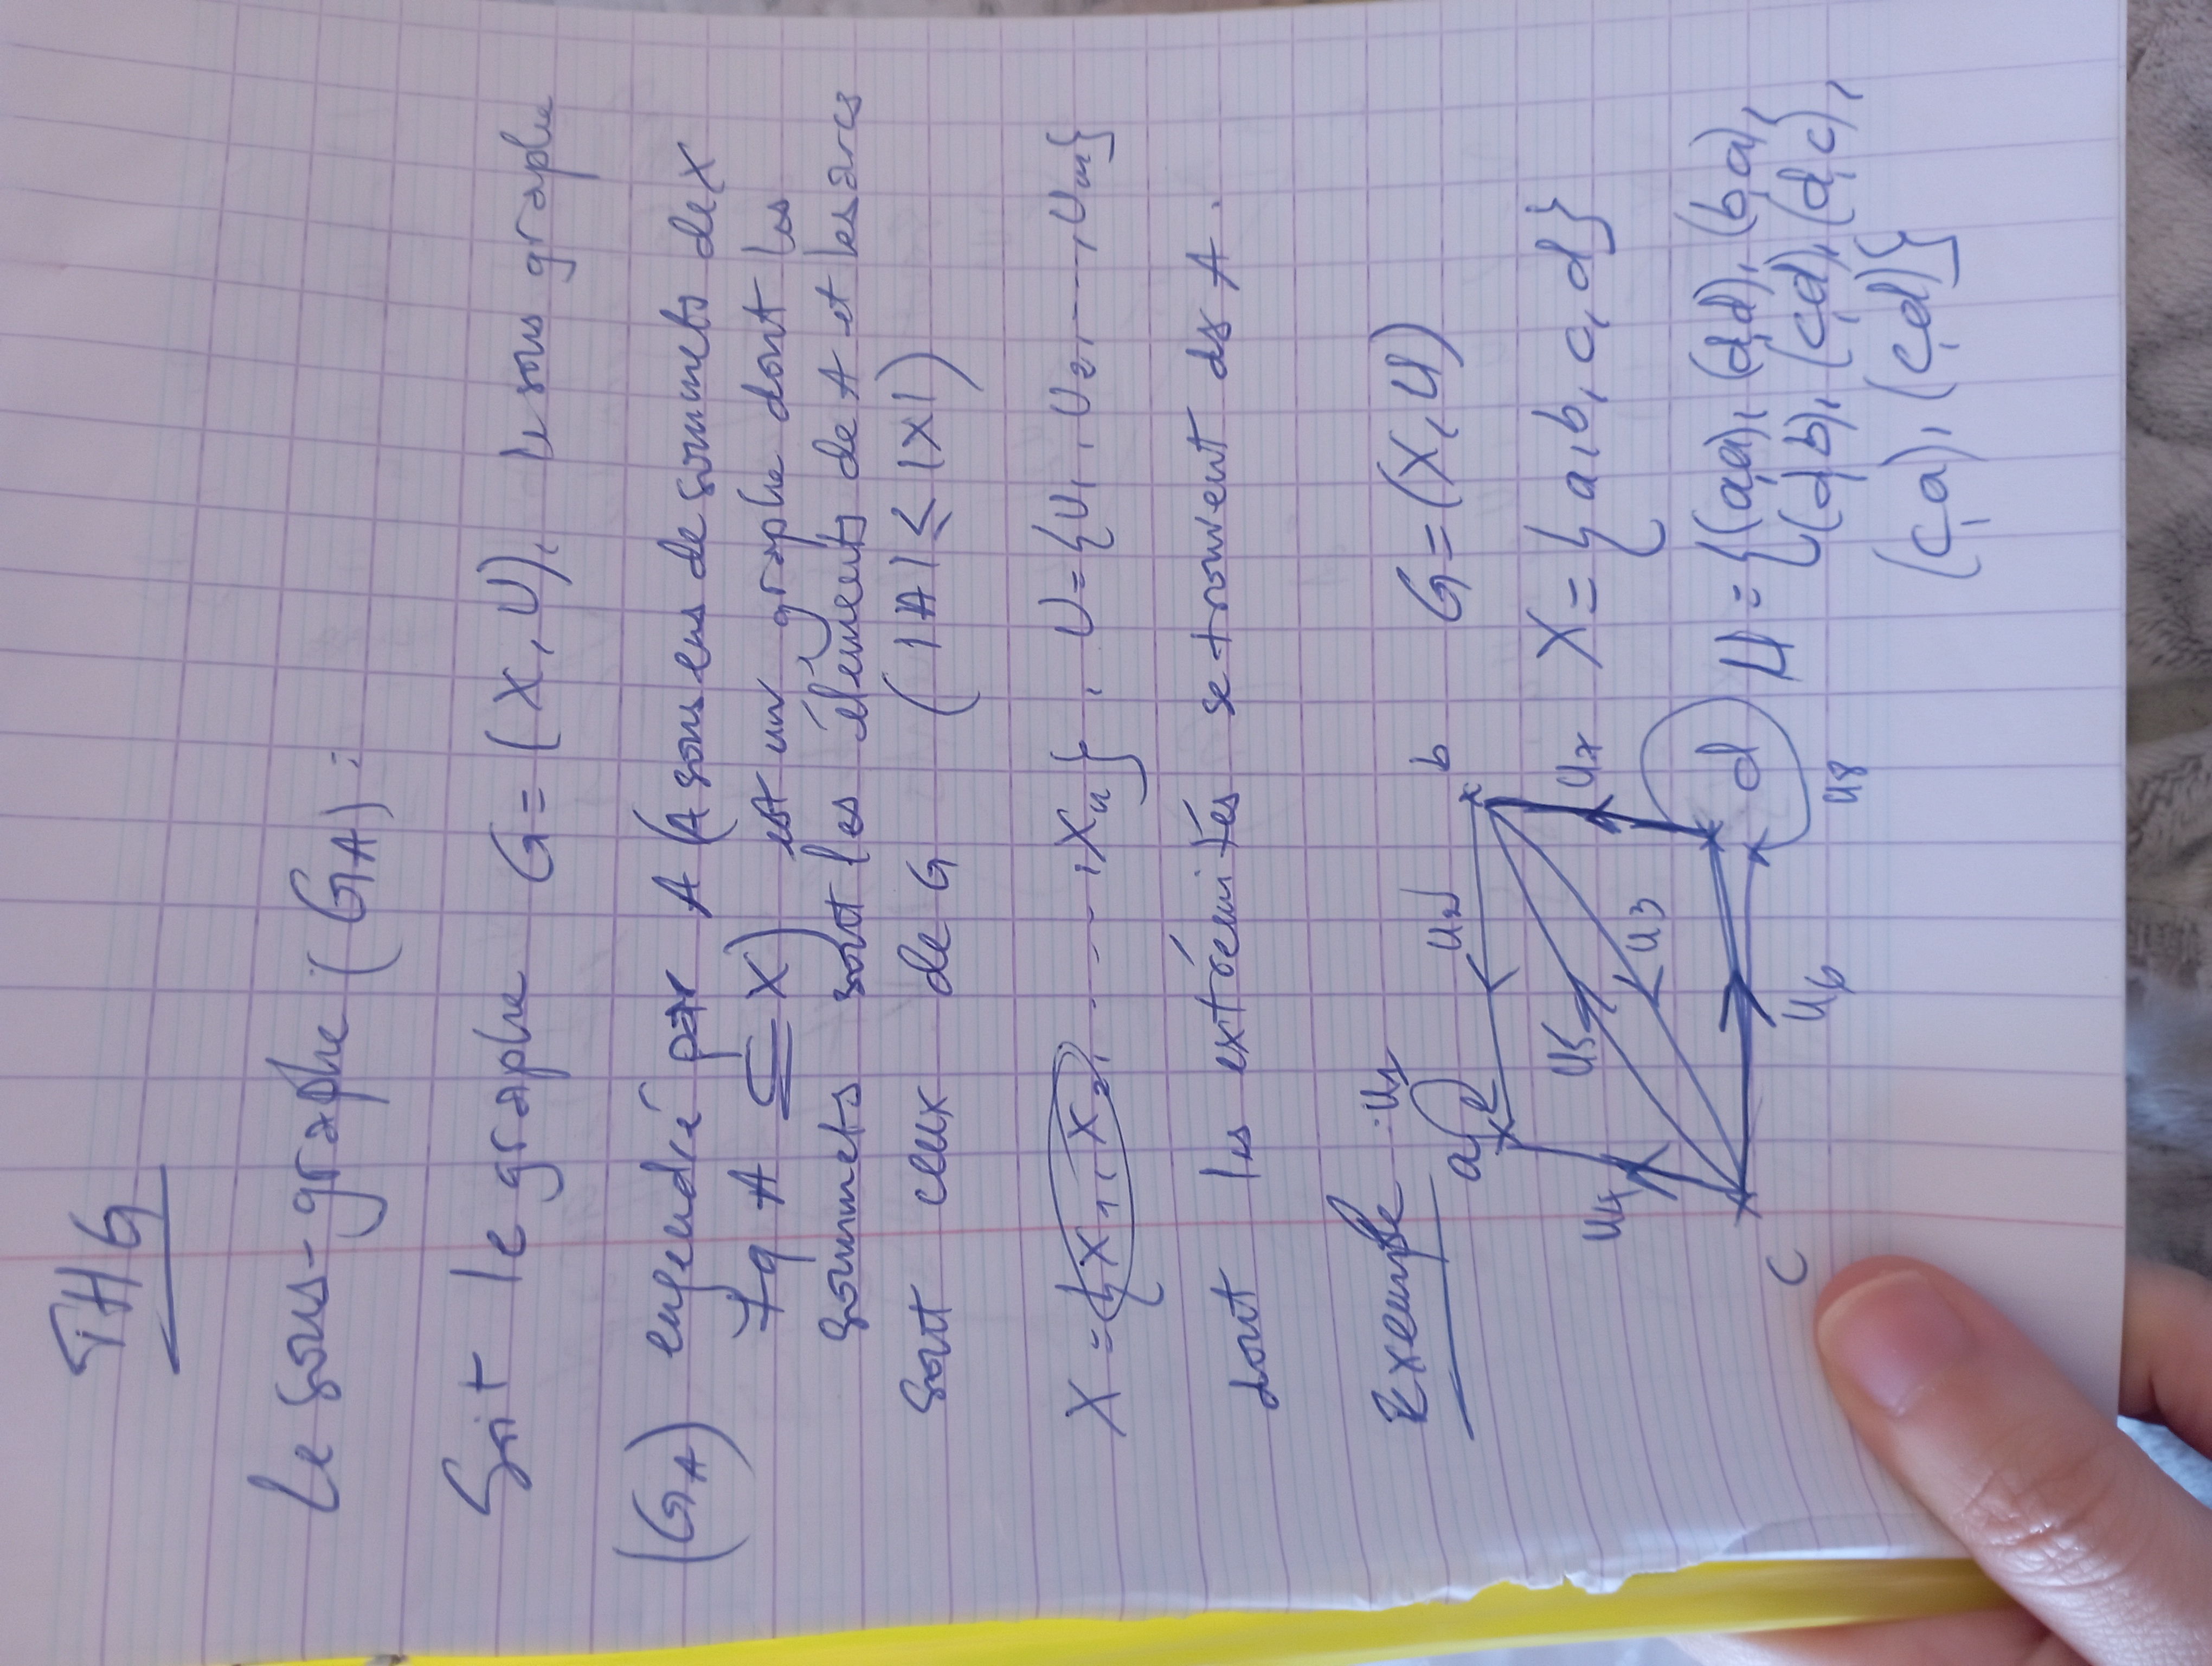 THG
Le sous-graphe (G_A) :
Soit le graphe G = (X, U), le sous graphe
(G_A) engendré par A (A sous ens de sommets de X
tq A ⊆ X) est un graphe dont les
sommets sont les éléments de A et les arcs
sont ceux de G (|A| ≤ |X|)
X = {x₁, x₂, ......, xₙ}, U = {U₁, U₂, ..., Uₘ}
dont les extrémités se trouvent ds A.
Exemple :
u₁
a
u₂
b
G = (X, U)
u₄
u₅
u₃
u₇
X = {a, b, c, d}
c
d
u₆
u₈
U = {(a,a), (d,d), (b,a),
(d,b), (c,d), (d,c),
(c,a), (c,d)}